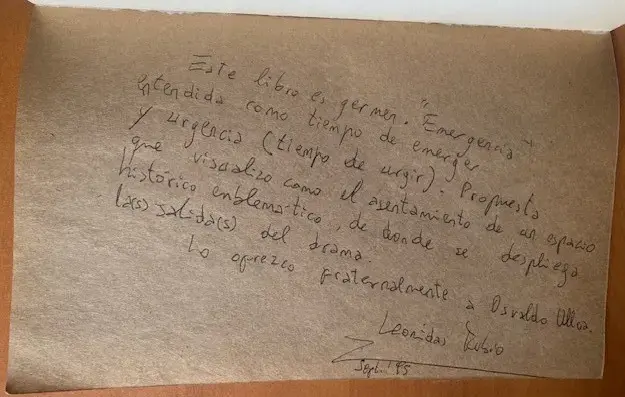 Este libro es germen. "Emergencia"
entendida como tiempo de emerger
y urgencia (tiempo de urgir). Propuesta
que visualizo como el asentamiento de un espacio
histórico emblemático, de donde se despliega
la(s) salida(s) del drama.
Lo ofrezco fraternalmente a Osvaldo Ulloa.
Leonidas Rubio
Sept. '95